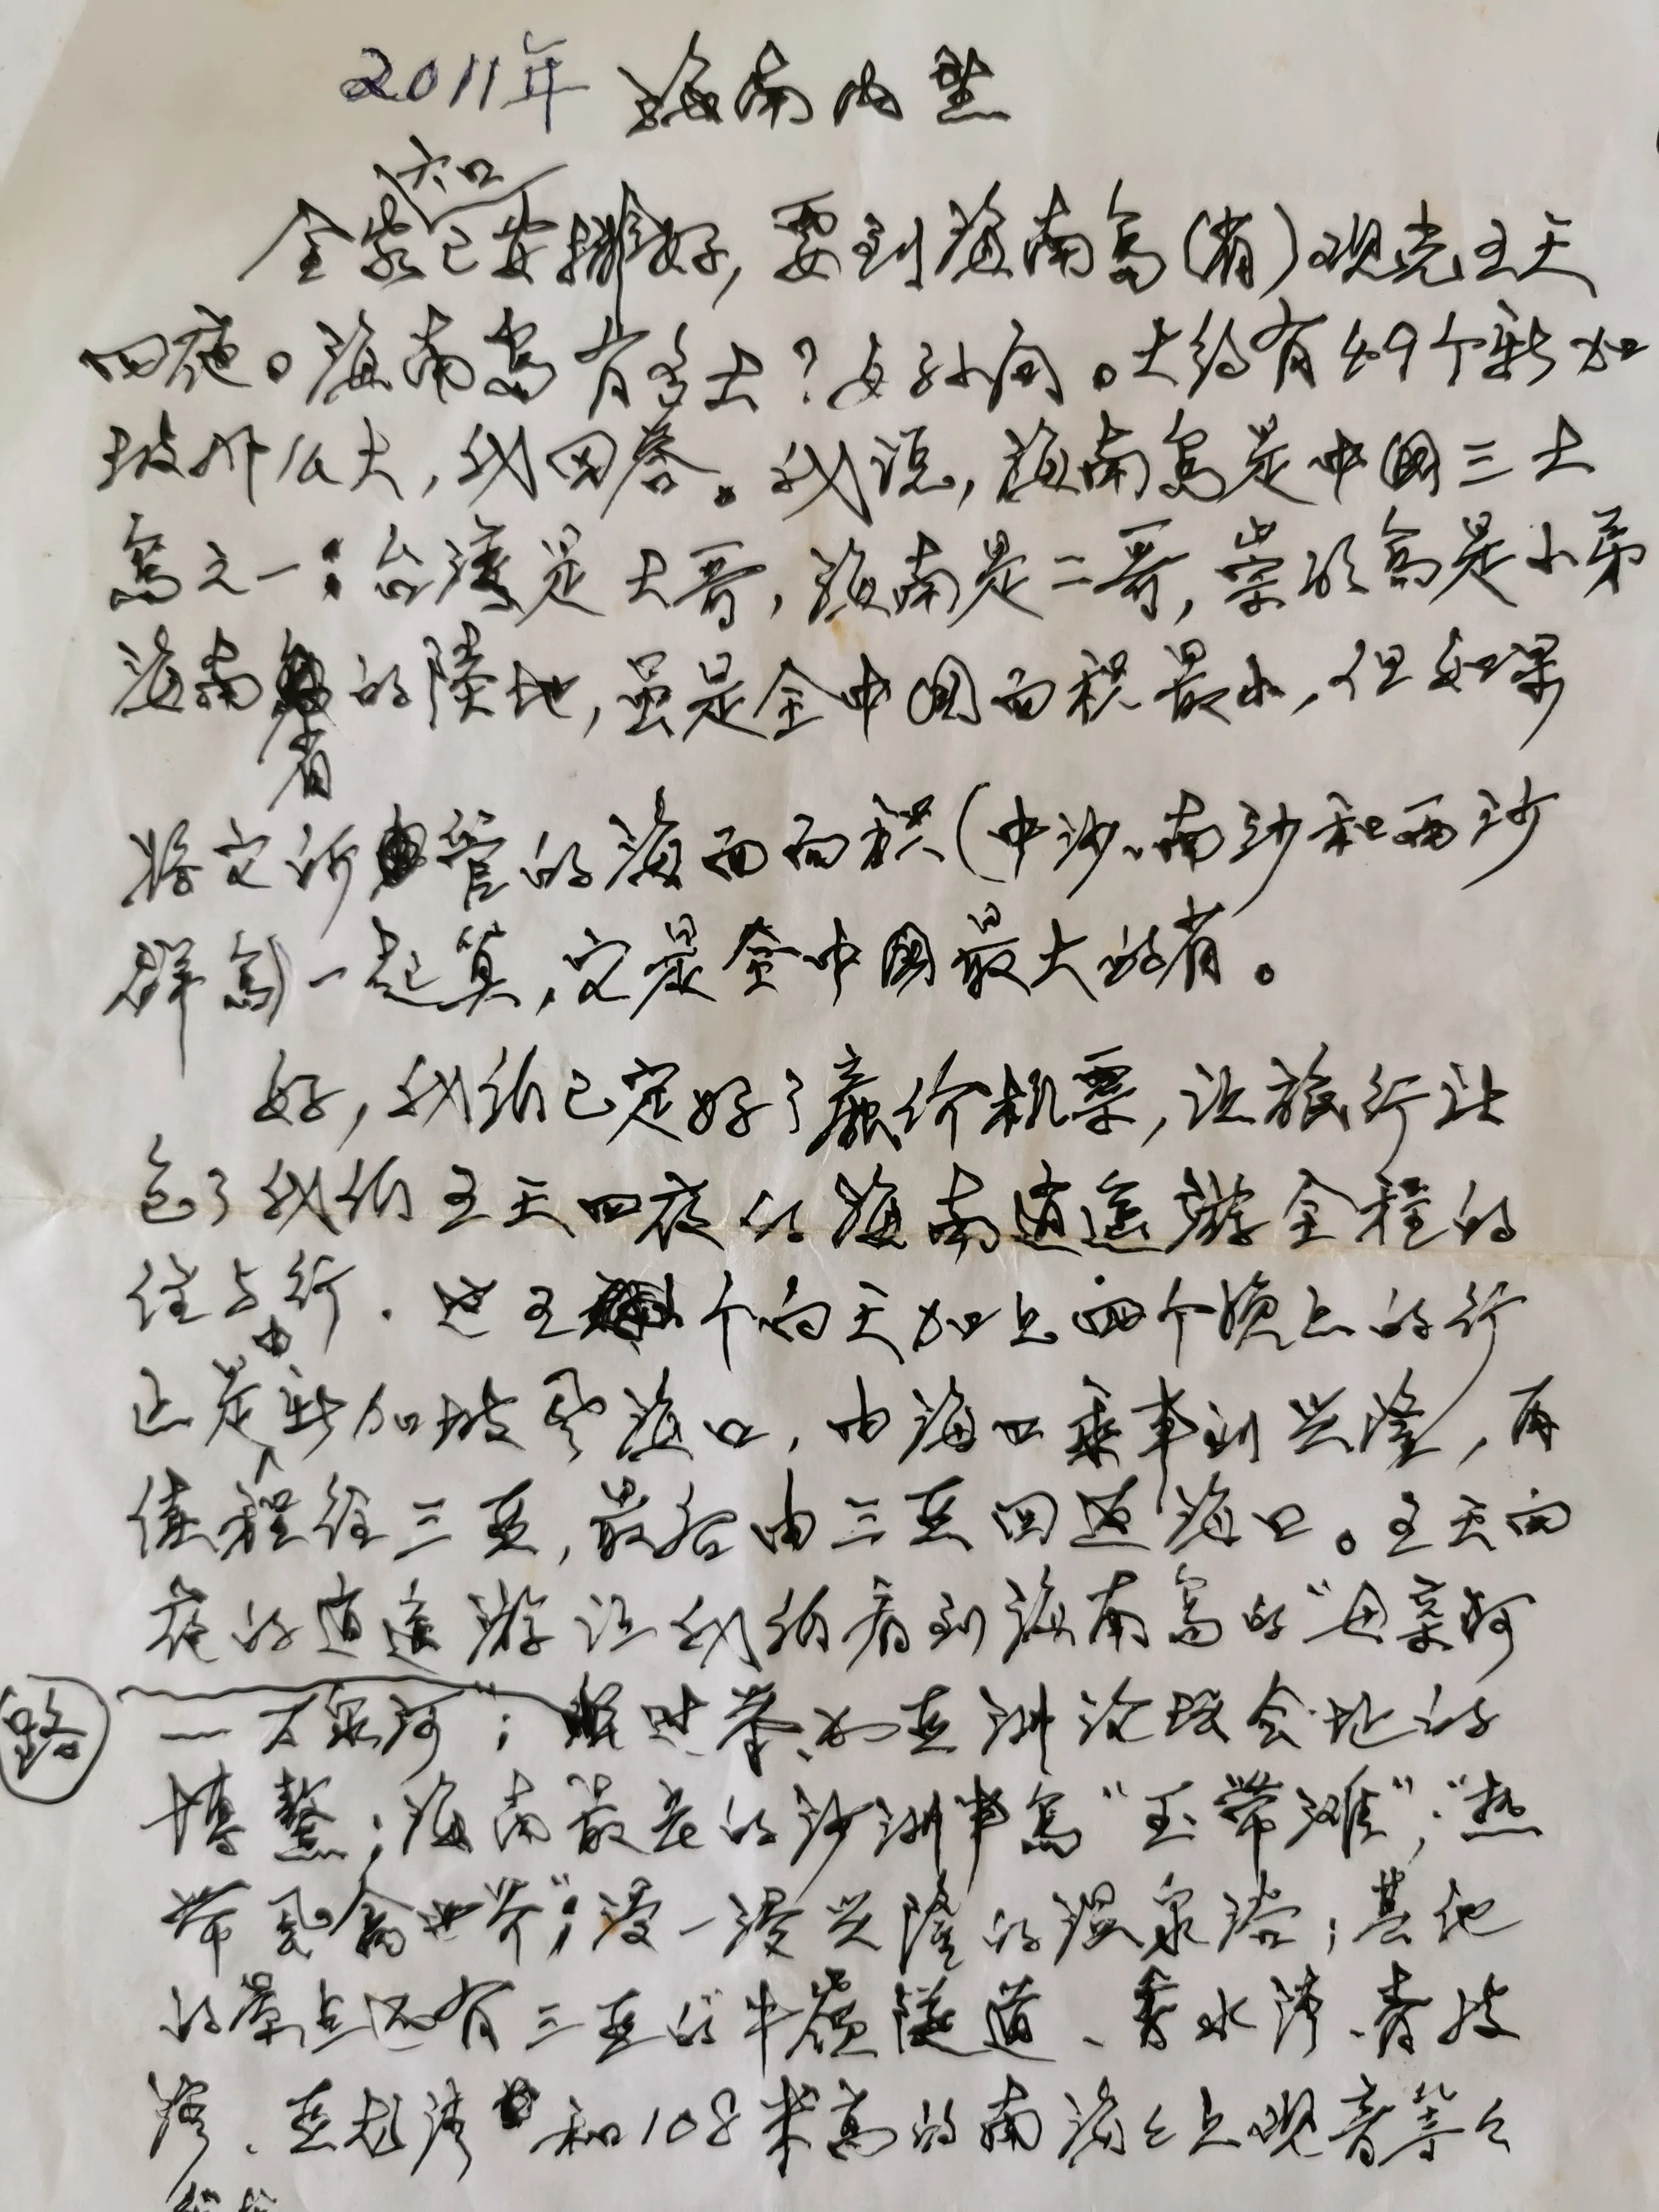 2011年 海南内望
六口
全家已安排好，要到海南岛(省)观光五天
四夜。海南岛有多大？女孙问。大约有49个新加
坡那么大，我回答。我说，海南岛是中國三大
岛之一：台湾是大哥，海南是二哥，崇明岛是小弟
海南的陸地，虽是全中國面积最小，但如果
省
将它所管的海面面积(中沙、南沙和西沙
群岛)一起算，它是全中國最大的省。
好，我们已定好了廉价机票，让旅行社
包了我们五天四夜的海南逍遥游全程的
住与行．这五个白天加上四个晚上的行
由
正是新加坡飞海口，由海口乘车到兴隆，再
续程往三亚，最后由三亚回返海口。五天四
夜的逍遥游让我们看到海南岛的“母亲河
路
—万泉河”；作为亚洲论坛会址的
博鳌；海南最长的沙洲半岛“玉带滩”；“热
带风情世界”；浸一浸兴隆的温泉浴；其他
的景点还有三亚的“牛嶺隧道、香水湾、清坡
湾、亚龙湾和108米高的南海海上观音等等